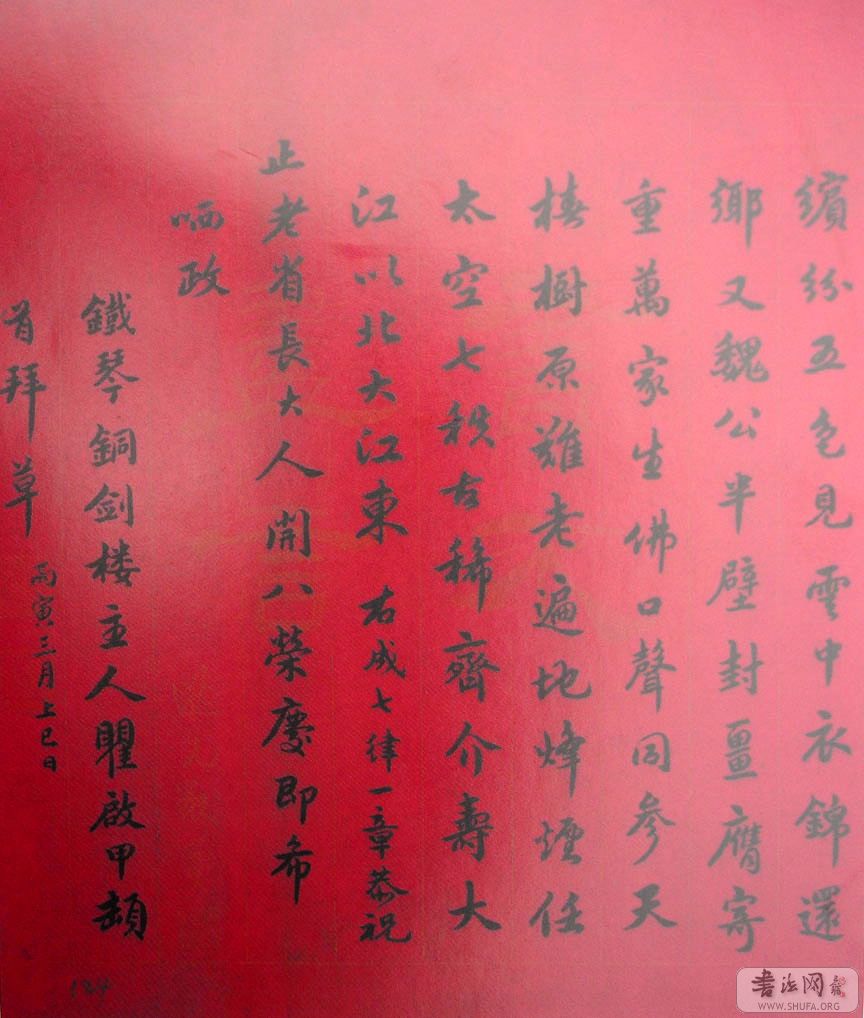 繽紛五色見雲中衣錦還
鄉又魏公半壁封畺膺寄
重萬家生佛口聲同參天
椿樹原難老遍地烽煙任
太空七秩古稀齊介壽大
江以北大江東 右成七律一章恭祝
止老省長大人開八榮慶即希
哂政
鐵琴銅劍楼主人瞿啟甲頓
首拜草 丙寅三月上巳日
124
書法网
WWW.SHUFA.ORG